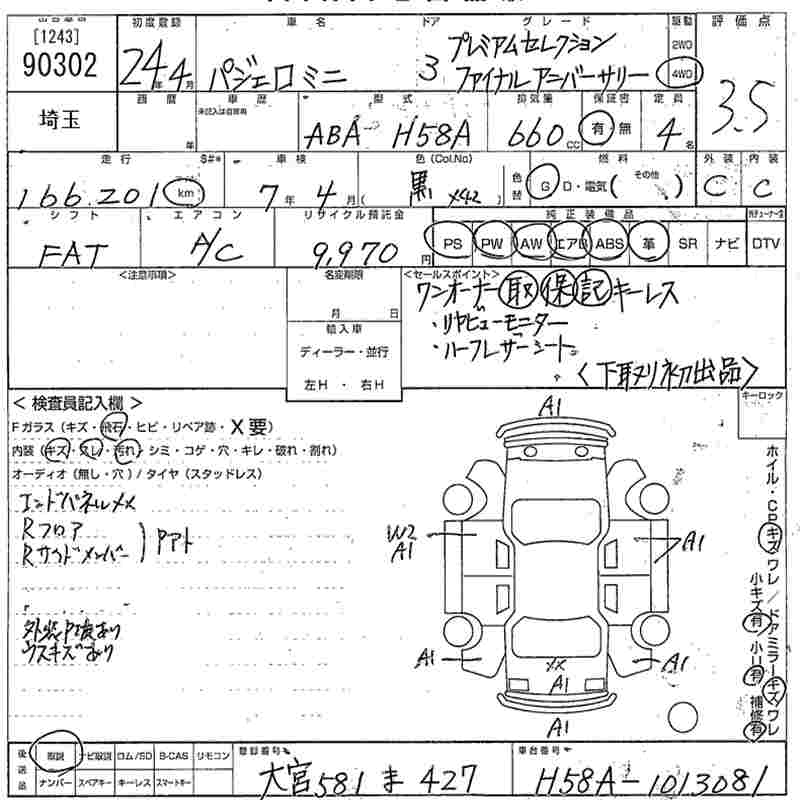 出品番号 初度登録 車名 ドア グレード 駆動 評価点
[1243]
90302
24年4月 パジェロミニ 3
プレミアムセレクション
ファイナルアニバーサリー
2WD
4WD
3.5
埼玉
西暦 車歴 型式 排気量 保証書 定員
年 未記入は自家用 ABA- H58A 660cc 有・無 4名
走行 車検 色(Col.No) 色替 燃料 外装 内装
166.201 km 7年 4月 黒 X42 G D・電気( その他 ) C C
シフト エアコン リサイクル預託金 純正装備品
FAT A/C 9,970円 PS PW AW エアB ABS 革 SR ナビ DTV
<注意事項> 名変期限 <セールスポイント>
月 日
輸入車
ディーラー・並行
左H ・ 右H
ワンオーナー 取 保 記 キーレス
・リヤビューモニター
・ハーフレザーシート
<下取り初出品>
キーロック
< 検査員記入欄 >
Fガラス (キズ・飛石・ヒビ・リペア跡・X要)
内装 (キズ・スレ・汚れ・シミ・コゲ・穴・キレ・破れ・割れ)
オーディオ (無し・穴) / タイヤ (スタッドレス)
エンドパネルXX
Rフロア
Rサイドメンバー
外装
ウスキズあり
A1
W2
A1
A1
A1
A1
XX
A1
A1
ホイル・CPキズ ワレ / ドアミラーキズ ワレ
小キズ有 小凹有 補修有
後送品 取説 ナビ取説 ロム/SD B-CAS リモコン
ナンバー スペアキー キーレス スマートキー
登録番号 車台番号
大宮 581 ま 427 H58A-1013081